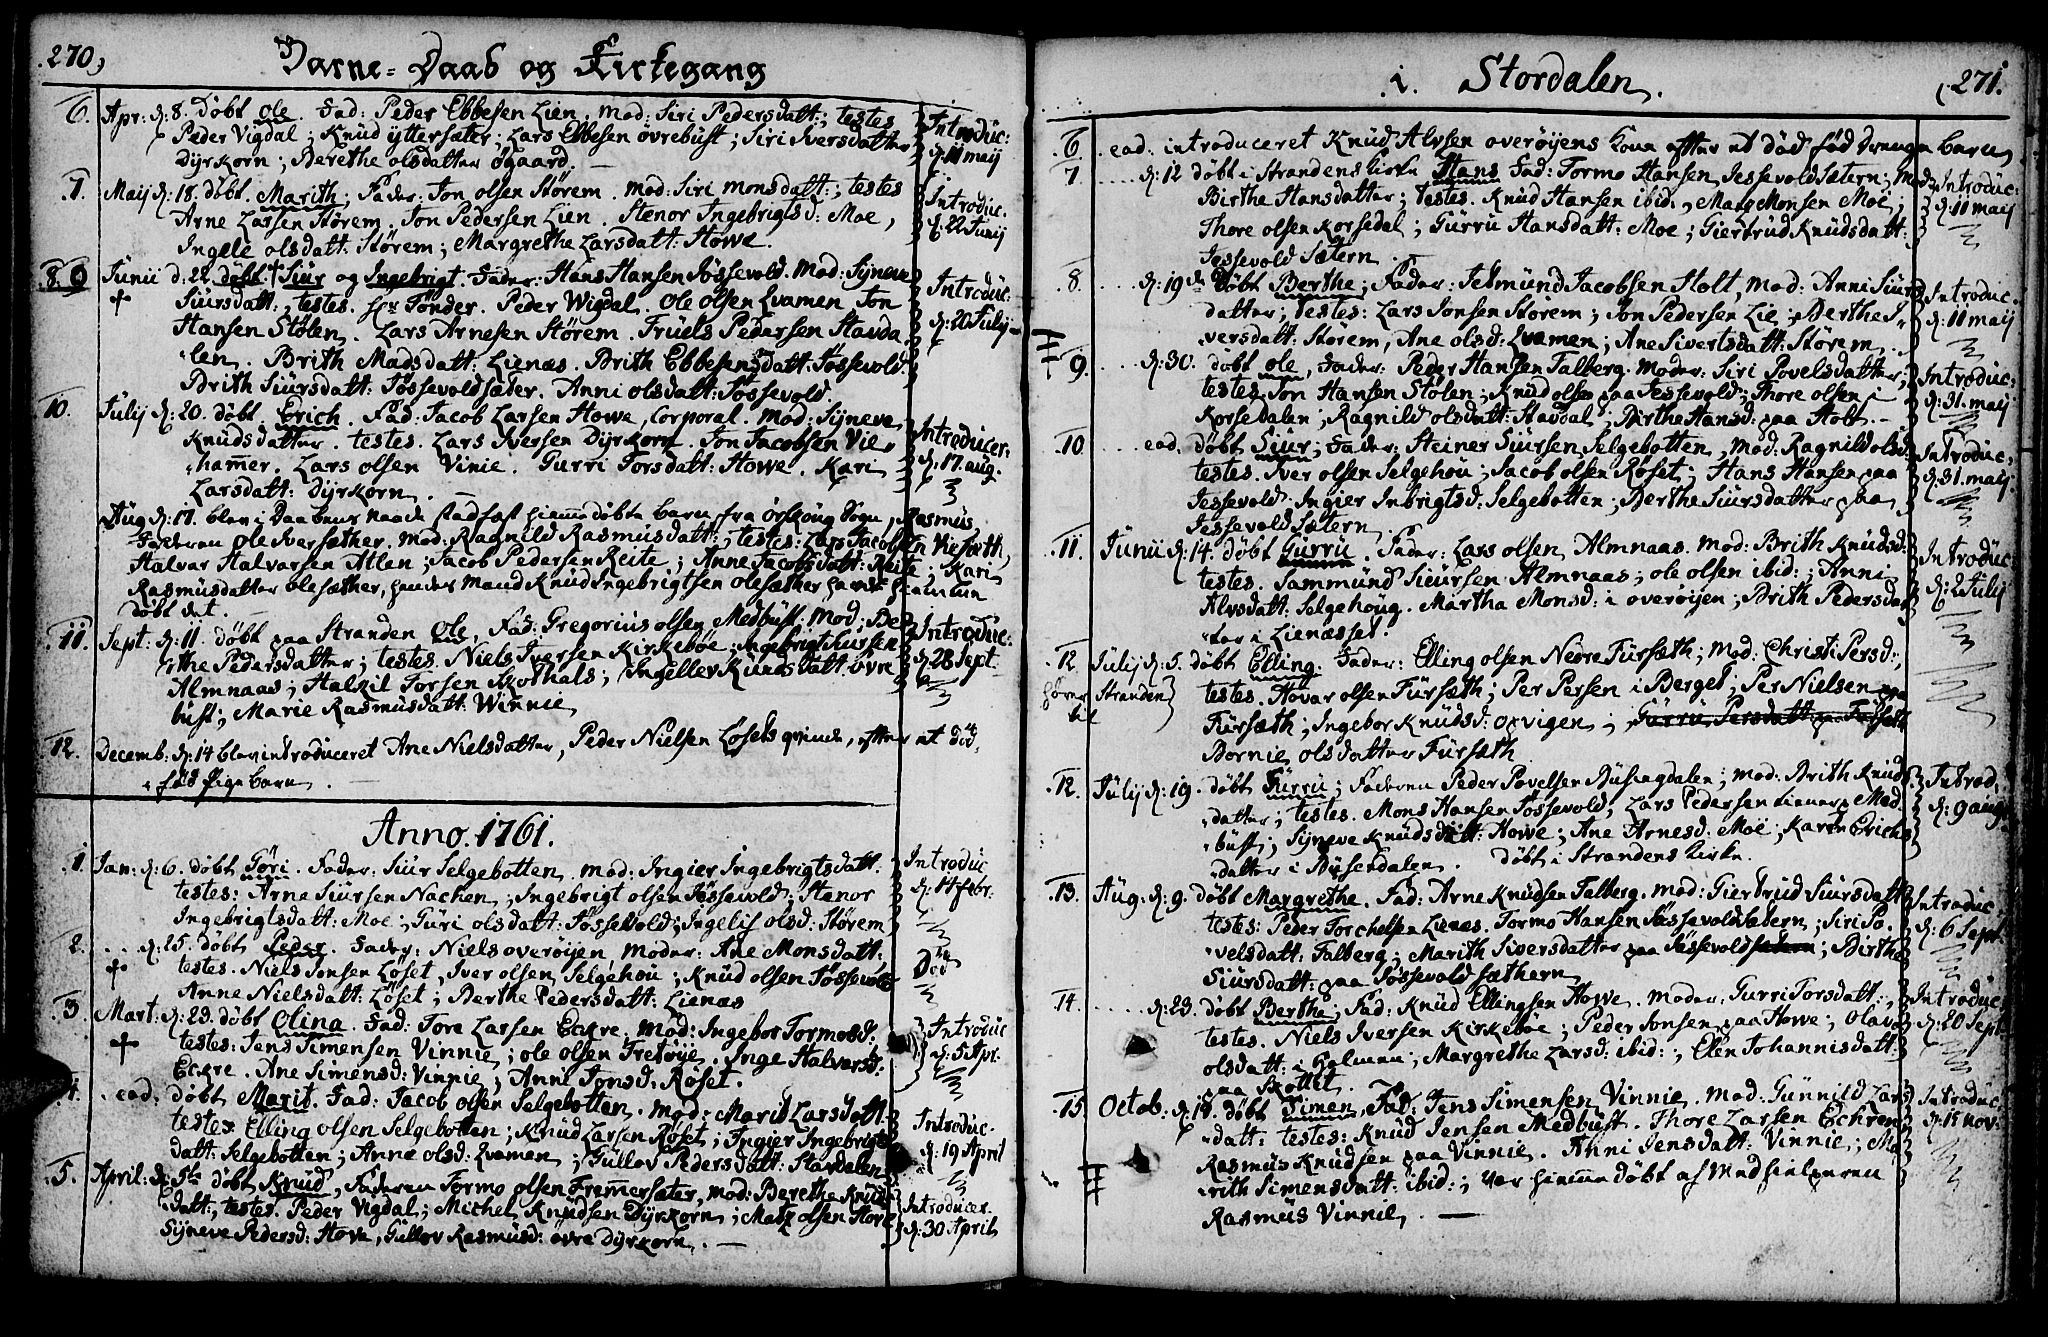 270,
Barne-Daab og Kirkegang
6. Apr: d: 8. Døbt Ole. Fad: Peder Ebbesen Lien, Mod: Siri Pedersdatt:, testes
Peder Vigdal; Knud yttersæter; Lars Ebbesen øvrebust; Siri Iversdatter
Dyrkorn; Berethe olsdatter øgaard.
Introduc:
d: 11 maij
7. Maij d: 18. døbt. Marith; Fader: Jon olsen Störem. mod: Siri monsdatt:; testes
Arne Larsen Störem. Jon Pedersen Lien. Stenor Ingebrigtsd: Moe,
Ingele olsdatt: Störem; Margrethe Larsdatt: Howe.
Introduc.
d: 22 Junij
8. 9 Junii d. 22. døbt Siur og Ingebrigt. Fader: Hans Hansen Fossevold. Mod: Syneve
Siursdatt:, testes. Hr Tönder. Peder Wigdal. Ole olsen Qvamen Jon
Hansen Stölen. Lars Arnesen Störem. Truels Pedersen Stavda-
len. Brith Madsdatt: Lienæs. Brith Ebbesensdatt: Fossevold.
Brith Siursdatt: Fossevoldsæder. Anni olsdatt: Fossevold.
Introduc:
d: 20 Julij
10. Julij d: 20. døbt. Erich. Fad: Jacob Larsen Howe, Corporal. Mod: Syneve
Knudsdatter. testes. Lars Iversen Dyrkorn. Jon Jacobsen Vie-
hammer. Lars olsen Vinie. Gurri Torsdatt: Howe. Kari
Larsdatt: Dyrkorn.
Introducer:
d: 17. aug.
Aug d: 17. blev i Daabens Naade stadfæst hiemmedöbte barn fra Örskoug Sogn, Rasmus,
Faderen Ole Iversæther. Mod: Ragnild Rasmusdatt:; testes: Lars Jacobsen Viesæth,
Halvar Halvarsen Atlen; Jacob Pedersen Reite; Anne Jacobsdatt: Reite; Kari
Rasmusdatter olesæther, hendes Mand Knud Ingebrigtsen olesæther havde hiemme
döbt det.
11. Sept: d: 11. döbt paa Stranden Ole, Fad: Gregorius olsen Medbust, Mod; Be-
rthe Pedersdatter; testes. Niels Iversen Kirkebøe; Ingebrigt Siursen
Almnaas; Halkil Torsen Skothals; Ingellev Knudsdatt: övre
bust; Marie Rasmusdatt: Winnie
Introduc:
d: 28 Sept
12. Decemb: d: 14 blev introduceret Ane Nielsdatter, Peder Nielsen Løsets qvinde, efter et död
föd Pige barn.
Anno. 1761.
1. Jan: d: 6. döbt Göri. Fader: Siur Selgebotten, mod: Ingier Ingebrigtsdatt.
testes: Arne Siursen Nachen; Ingebrigt olsen Fossevold; Stanor
Ingebrigtsdatt: Moe; Guri olsdatt: Fossevold; Ingelif olsd: Störem
Introduc
d: 14 febr:
2. d: 25. döbt Peder. Fader: Niels overöyen, Moder: Ane Monsdatt:
testes. Niels Jonsen Löset, Iver olsen Selgehou; Knud olsen Fossevold
Anne Nielsdatt: Löset; Berthe Pedersdatt: Lienæs
Död
3. Mart: d: 23. döbt Olina. Fad: Tore Larsen Eckre, Mod: Ingebor Tormodsd:
testes: Jens Simensen Vinnie; ole olsen Tretöye. Inge Halversd:
Eckre. Ane Simensd: Vinnie; Anni Jonsd: Röset.
Introduc
d: 5 Apr.
4. ead. döbt Marit. Fad: Jacob olsen Selgebotten. mod: Marit Larsdatt
testes: Elling olsen Selgebotten; Knud Larsen Röset; Ingier Ingebrigts
datt: Selgebotten; Anne olsd: Qvamen; Gullov Pedersdatt: Stavdalen
Introduc.
d: 19 April
5. April: d: 5te döbt Knud, Faderen Tormo olsen Fremmersæter, mod: Berethe Knuds
datt:, testes. Peder Vigdal; Michel Knudsen Dyrkorn; Mats olsen Hove
Syneve Pedersd: Hove, Gullov Rasmusd: övre Dyrkorn.
Introducer.
d: 30 April
i Stordalen.
271.
6 ead: introduceret Knud Alvsen overöyens Kone efter et död föd Drenge barn
7. d: 12 döbt i Strandens Kirke Hans Fad: Tormo Hansen Fossevold Sætern; Mod:
Birthe Hansdatter; testes. Knud Hansen ibid:, Mats Monsen Moe;
Thore olsen Korsedal; Gurru Hansdatt: Moe; Giertrud Knudsdatt:
Fossevold Sætern
Introduc:
d: 11 maij
8. d: 19de Döbt Berthe; Fader: Jetmund Jacobsen Holt, mod: Anni Siurs
datter; testes: Lars Jonsen Störem; Jon Pedersen Lie; Berthe I-
versdatt: Störem, Ane olsd: Qvamen; Ane Sivertsdatt: Störem
Introduc.
d: 11 maij
9. d: 30. döbt ole, Fader: Peder Hansen Falberg. Moder: Siri Povelsdatter,
testes. Jon Hansen Stölen; Knud olsen paa Fossevold; Thore olsen i
Korsedalen; Ragnild olsdatt: Stavdal; Birthe Hansd: paa Holt.
Introduc:
d: 31. maij
10. ead, döbt Siur; Fader: Steiner Siursen Selgebotten, Mod: Ragnild olsd:
testes. Iver olsen Selgehou; Jacob olsen Röset; Hans Hansen paa
Fossevold. Ingier Inbrigtsd: Selgebotten; Berthe Siursdatter paa
Fossevold Sætern
Introduc,
d: 31. maij
11. Junii d: 14. döbt Gurru. Fader: Lars olsen Almnaas. Mod: Brith Knudsd:
testes. Sammund Sieursen Almnaas; ole olsen ibid:; Anni
Alvsdatt: Selgehoug. Martha Monsd: i overöyen; Brith Pedersdat
ter i Lienæsset.
Introduc
d: 2 Julij
12. Julij d: 5. döbt Elling. Fader: Elling olsen Nedre Fursæth; Mod: Christi Persd:,
Stranden testes. Hovar olsen Fursæth; Per Persen i Berget; Per Nielsen paa
Fursæth; Ingebor Knudsd: opvigen; Gurru Persdatt: paa Fursæth
Bornie olsdatter Fursæth
12. Julij d: 19. döbt Furru; Faderen Peder Povelsen Busengdalen; mod: Brith Knuds
datter; testes. Mons Hansen Fossevold; Lars Pedersen Lienæs Med
bust; Syneve Knudsdatt: Howe; Ane Arnesd: Moe; Karen Erichs
datter i Busendalen. Döbt i Strandens Kirke.
Introd,
d: 9 aug
13. Aug: d: 9. döbt Margrethe. Fad: Arne Knudsen Falberg. mod: Giertrud Siursdatt
testes: Peder Torchelsen Lienæs. Tormo Hansen Fossevoldsætern; Siri Po-
velsdatt: Falberg; Marith Siversdatter paa Fossevoldsætern; Birthe
Siursdatt: paa Fossevold sæthern
Introduc
d: 6 Sept
14. d: 23. döbt Berthe; Fad: Knud Ellingsen Howe. moder: Gurri Torsdatt:,
testes. Niels Iversen Kirkebøe; Peder Jonsen paa Howe; Olava
olsdatt: i Holmen; Margrethe Larsd: ibid:; Elen Johannisdatt:
paa Skottet.
Introduc
d: 20 Sept
15. Octob. d: 18. döbt Simen, Fad: Jens Simensen Vinnie. mod: Gunnild Lars
datt: testes: Knud Jensen Medbust. Thore Larsen Echren,
Rasmus Knudsen paa Vinnie. Anni Jensdatt: Vinnie; Ma
rith Simensdatt: ibid:; var hiemme döbt af Medhielperen
Rasmus Vinnie.
Introduc.
d: 15 nov.